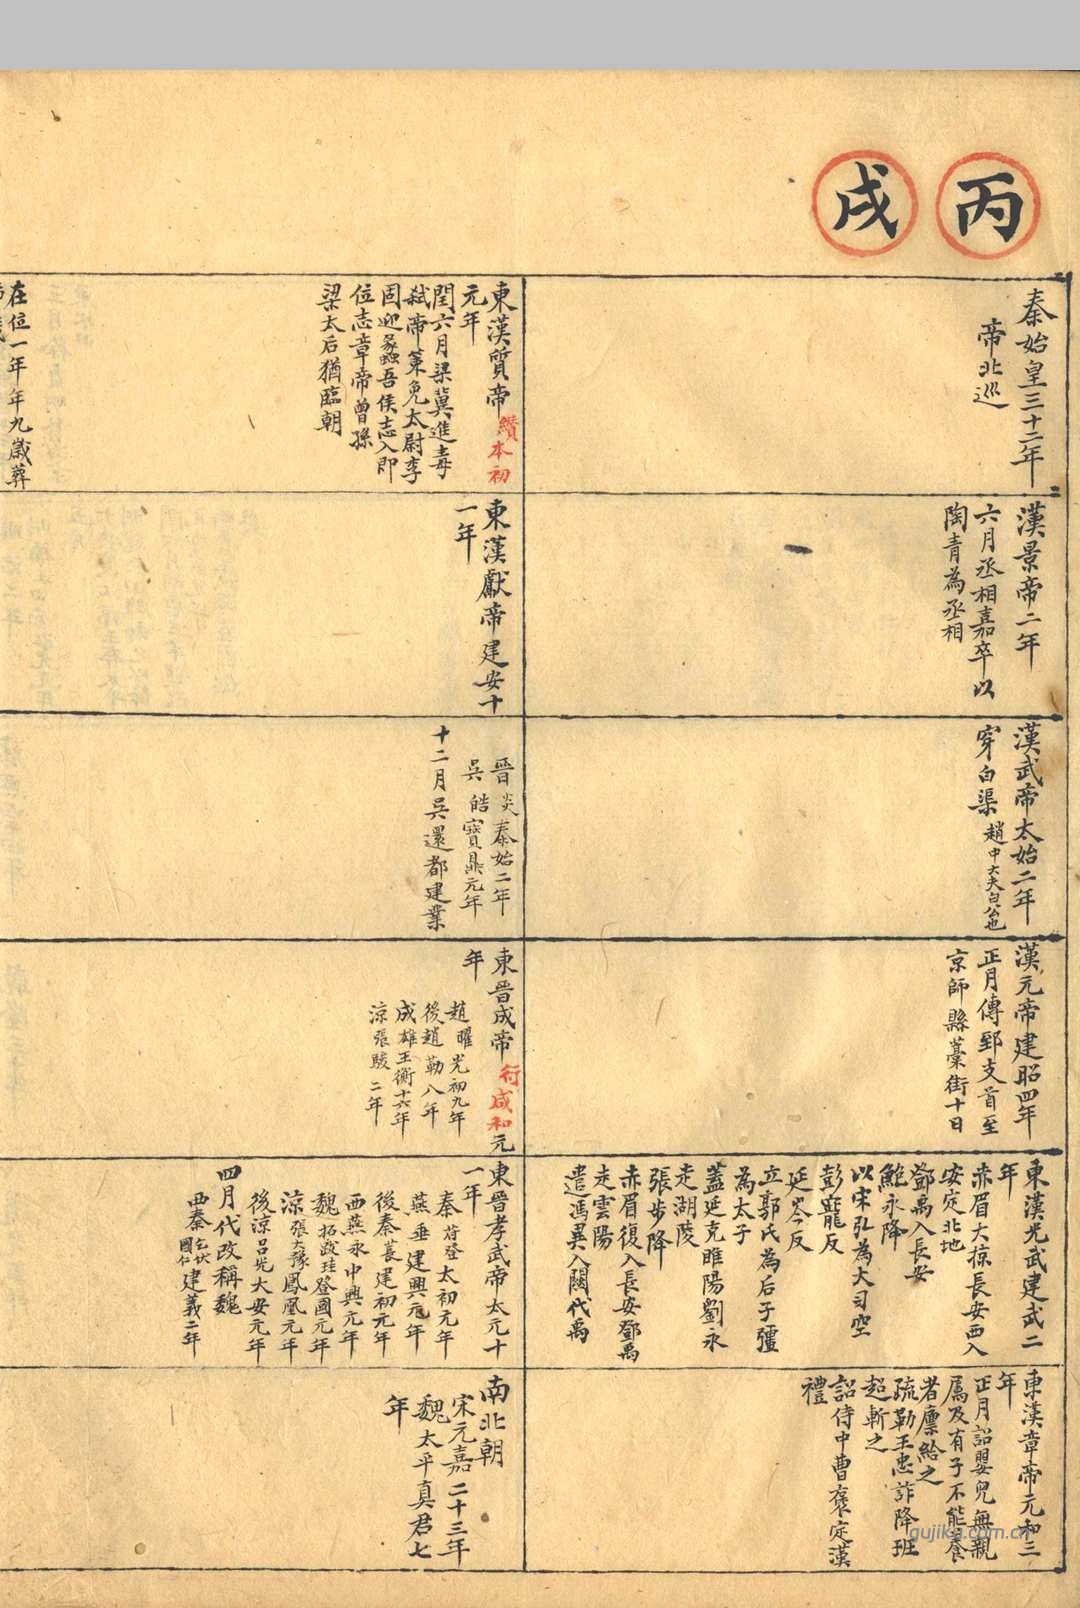 丙戌
秦始皇三十二年
帝北巡
漢景帝二年
六月丞相嘉卒以
陶青為丞相
漢武帝太始二年
穿白渠趙中大夫白公也
漢元帝建昭四年
正月傳郅支首至
京師縣藁街十日
東漢光武建武二
年
赤眉大掠長安西入
安定北地
鄧禹入長安
鮑永降
以宋弘為大司空
彭寵反
延岑反
立郭氏為后子彊
為太子
蓋延克睢陽劉永
走湖陵
張步降
赤眉復入長安鄧禹
走雲陽
遣馮異入關代禹
東漢章帝元和三
年
正月詔嬰兒無親
屬及有子不能養
者廩給之
疏勒王忠詐降班
超斬之
詔侍中曹褒定漢
禮
東漢質帝纘本初
元年
閏六月梁冀進毒
弒帝策免太尉李
固迎蠡吾侯志入即
位志章帝曾孫
梁太后猶臨朝
在位一年年九歲葬
東漢獻帝建安十
一年
晉炎泰始二年
吳皓寶鼎元年
十二月吳還都建業
東晉成帝衍咸和元
年
趙曜光初九年
後趙勒八年
成雄玉衡十六年
涼張駿二年
東晉孝武帝太元十
一年
秦苻登太初元年
燕垂建興元年
後秦萇建初元年
西燕永中興元年
魏拓跋珪登國元年
涼張大豫鳳凰元年
後涼呂光大安元年
四月代改稱魏
西秦乞伏國仁建義二年
南北朝
宋元嘉二十三年
魏太平真君七
年
gujika.com.cn